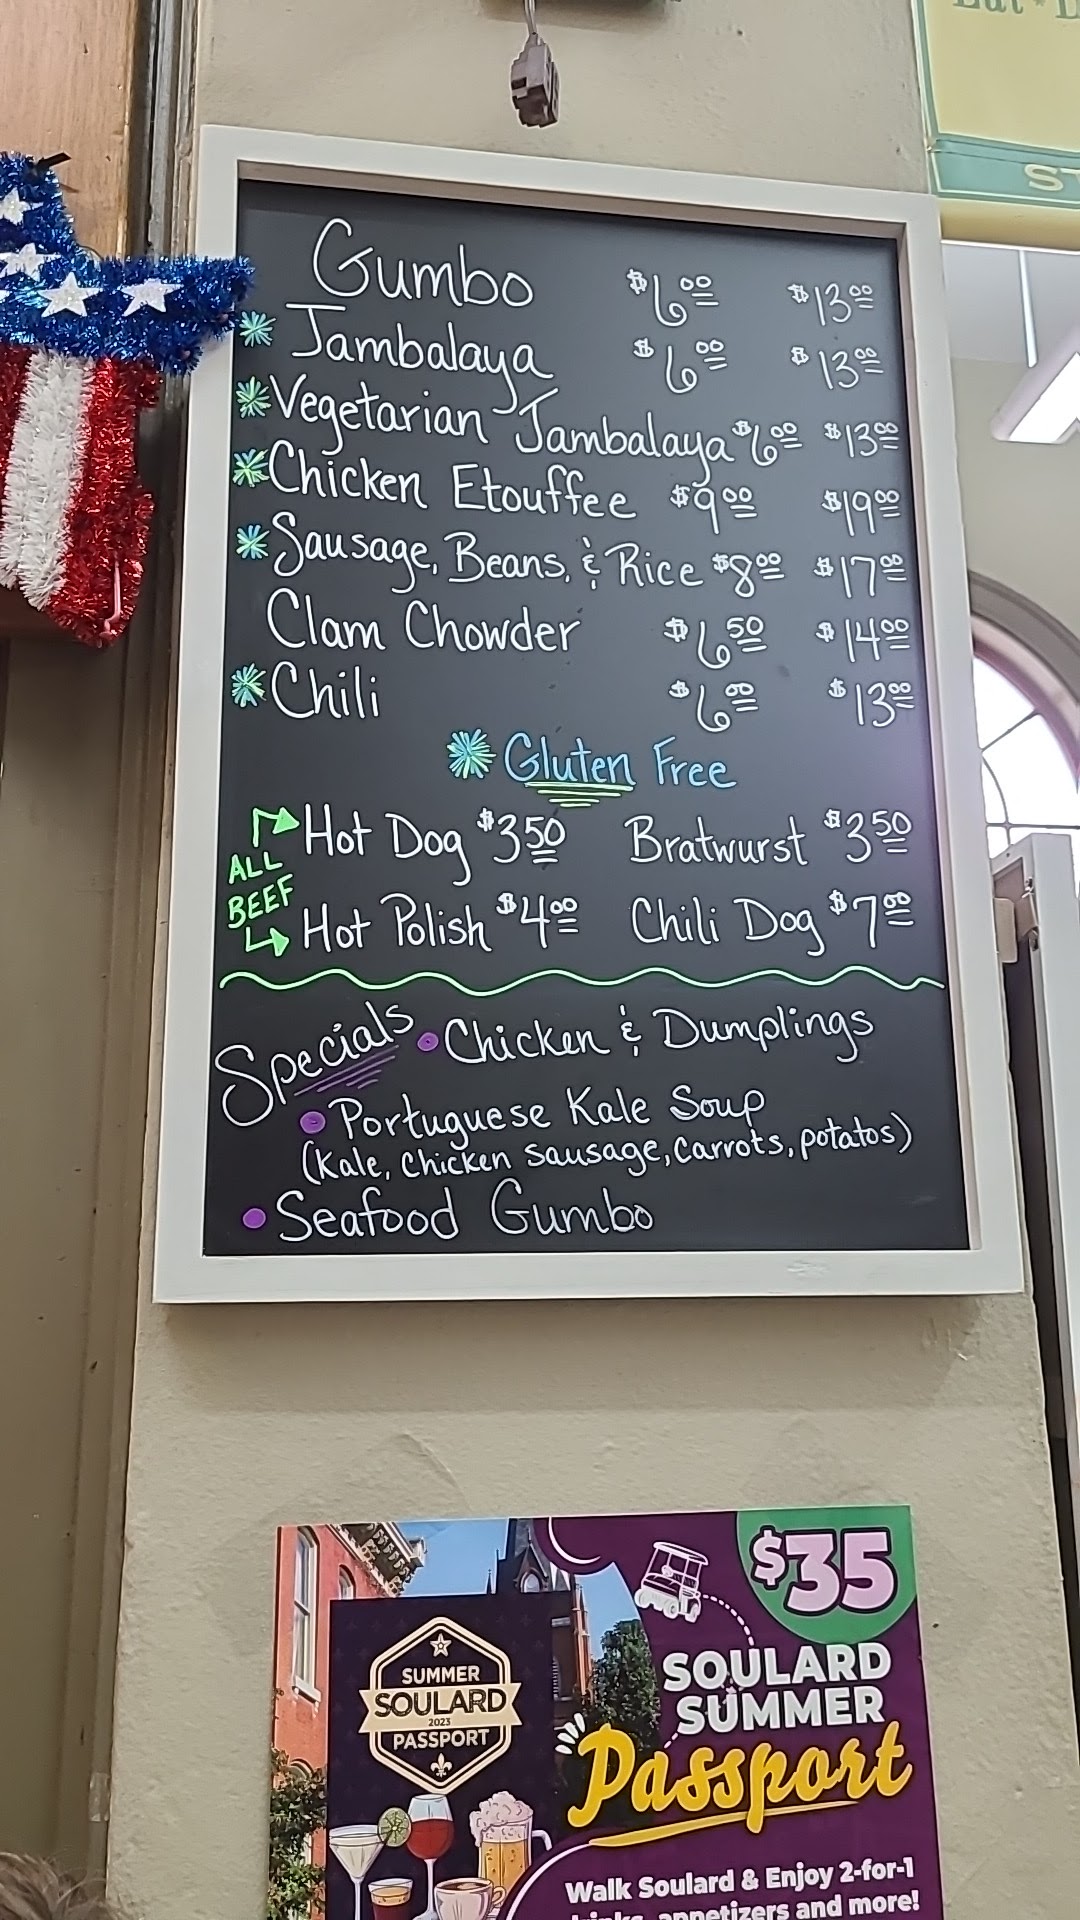 Gumbo $6.00 $13.00
* Jambalaya $6.00 $13.00
* Vegetarian Jambalaya $6.00 $13.00
* Chicken Etouffee $9.00 $19.00
* Sausage, Beans, & Rice $8.00 $17.00
Clam Chowder $6.50 $14.00
* Chili $6.00 $13.00
* Gluten Free
ALL BEEF
Hot Dog $3.50 Bratwurst $3.50
Hot Polish $4.00 Chili Dog $7.00
Specials • Chicken & Dumplings
• Portuguese Kale Soup
(Kale, Chicken Sausage, Carrots, potatos)
• Seafood Gumbo
$35
SOULARD
SUMMER
Passport
SUMMER
SOULARD
2023
PASSPORT
Walk Soulard & Enjoy 2-for-1
drinks, appetizers and more!